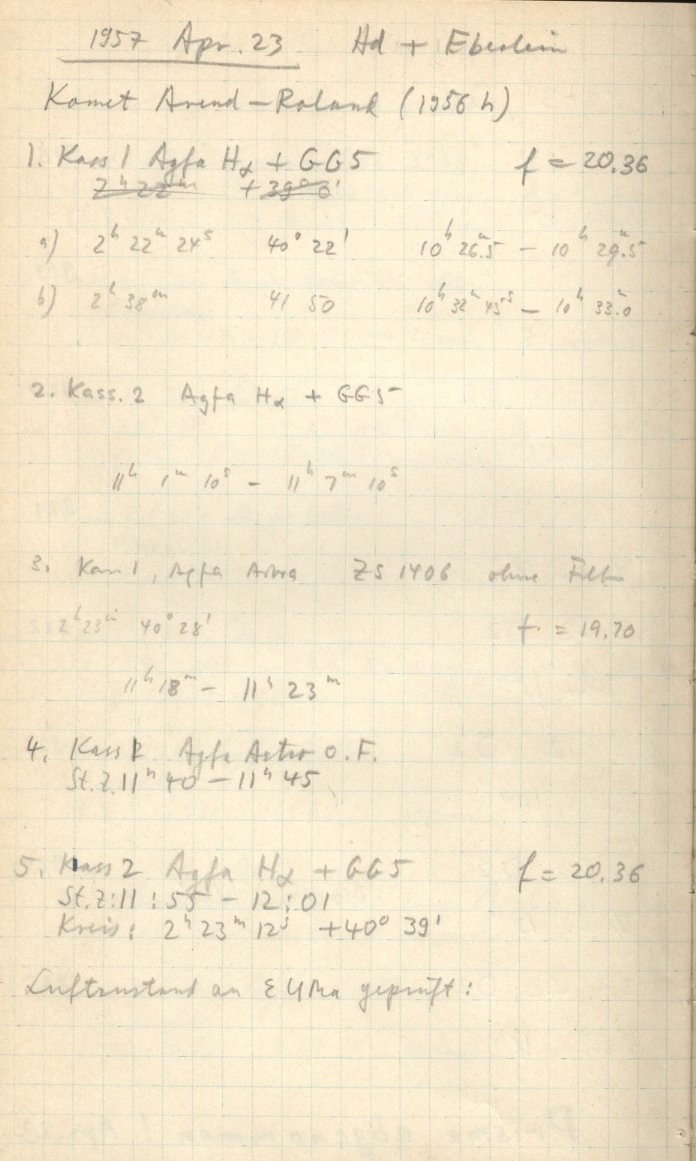 1957 Apr. 23 Hd + Eberlein
Komet Arend-Roland (1956 h)
1. Kass 1 Agfa Hα + GG5 f = 20.36
2ʰ 22ᵐ +39° 6'
a) 2ʰ 22ᵐ 24ˢ 40° 22' 10ʰ 26ᵐ.5 – 10ʰ 29ᵐ.5
b) 2ʰ 38ᵐ 41 50 10ʰ 32ᵐ 45ˢ – 10ʰ 33ᵐ.0
2. Kass. 2 Agfa Hα + GG5
11ʰ 1ᵐ 10ˢ – 11ʰ 7ᵐ 10ˢ
3. Kass 1, Agfa Astro ZS 1406 ohne Filter
2ʰ 23ᵐ 40° 28' f. = 19,70
11ʰ 18ᵐ – 11ʰ 23ᵐ
4. Kass Agfa Astro o.F.
St.Z. 11ʰ 40 – 11ʰ 45
5. Kass 2 Agfa Hα + GG5 f = 20.36
St.Z: 11:55 – 12:01
Kreis: 2ʰ 23ᵐ 12ˢ +40° 39'
Luftzustand an ε UMa geprüft: